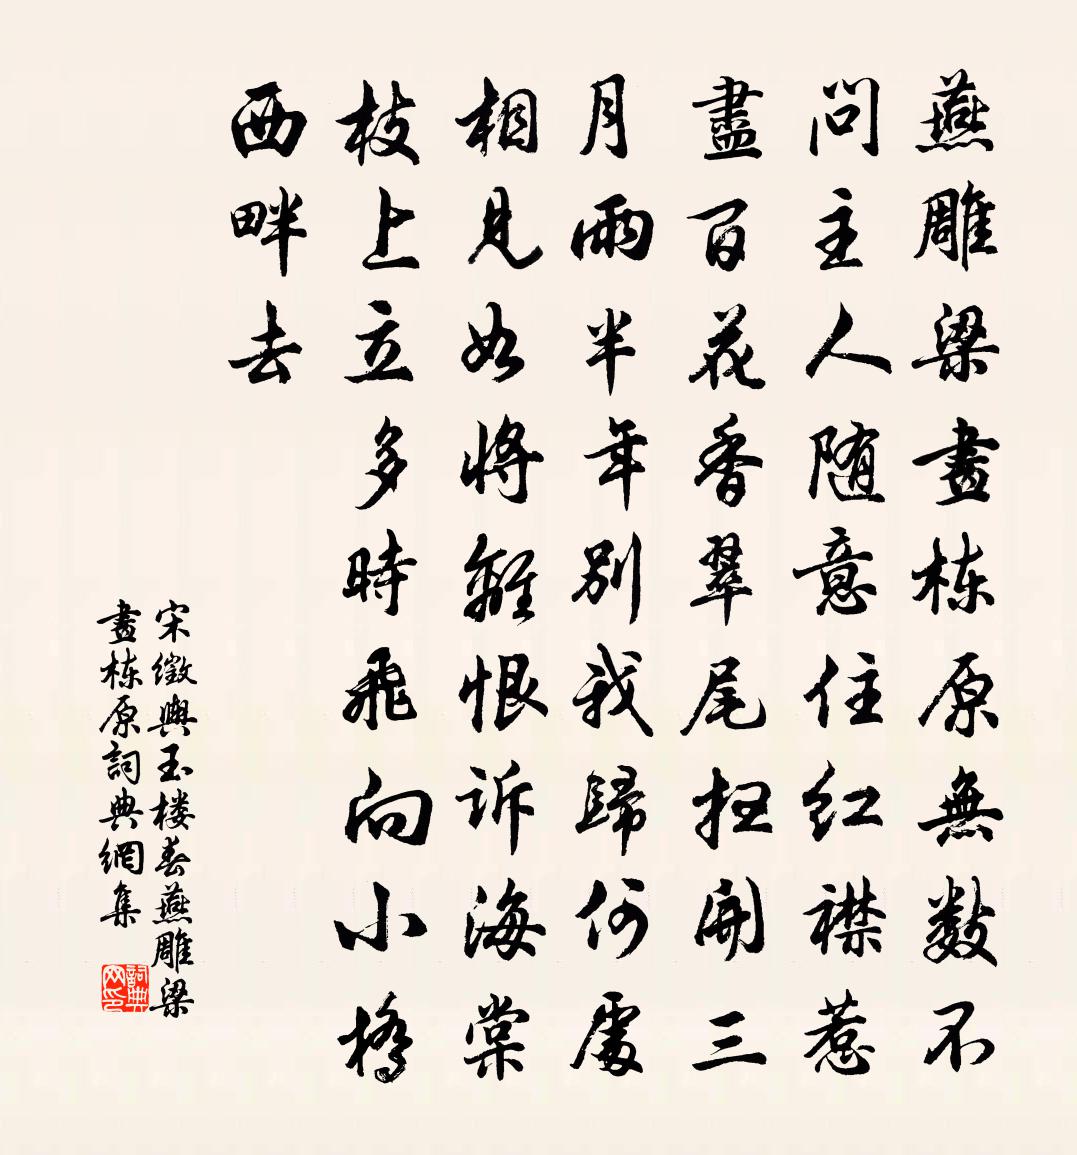 燕雕梁畫栋原無数不
問主人随意住红襟惹
盡百花香翠尾扫開三
月雨半年别我歸何處
相見如将離恨诉海棠
枝上立多時飛向小橋
西畔去
宋徵輿玉楼春燕雕梁
畫栋原詞典網集
詞典網印